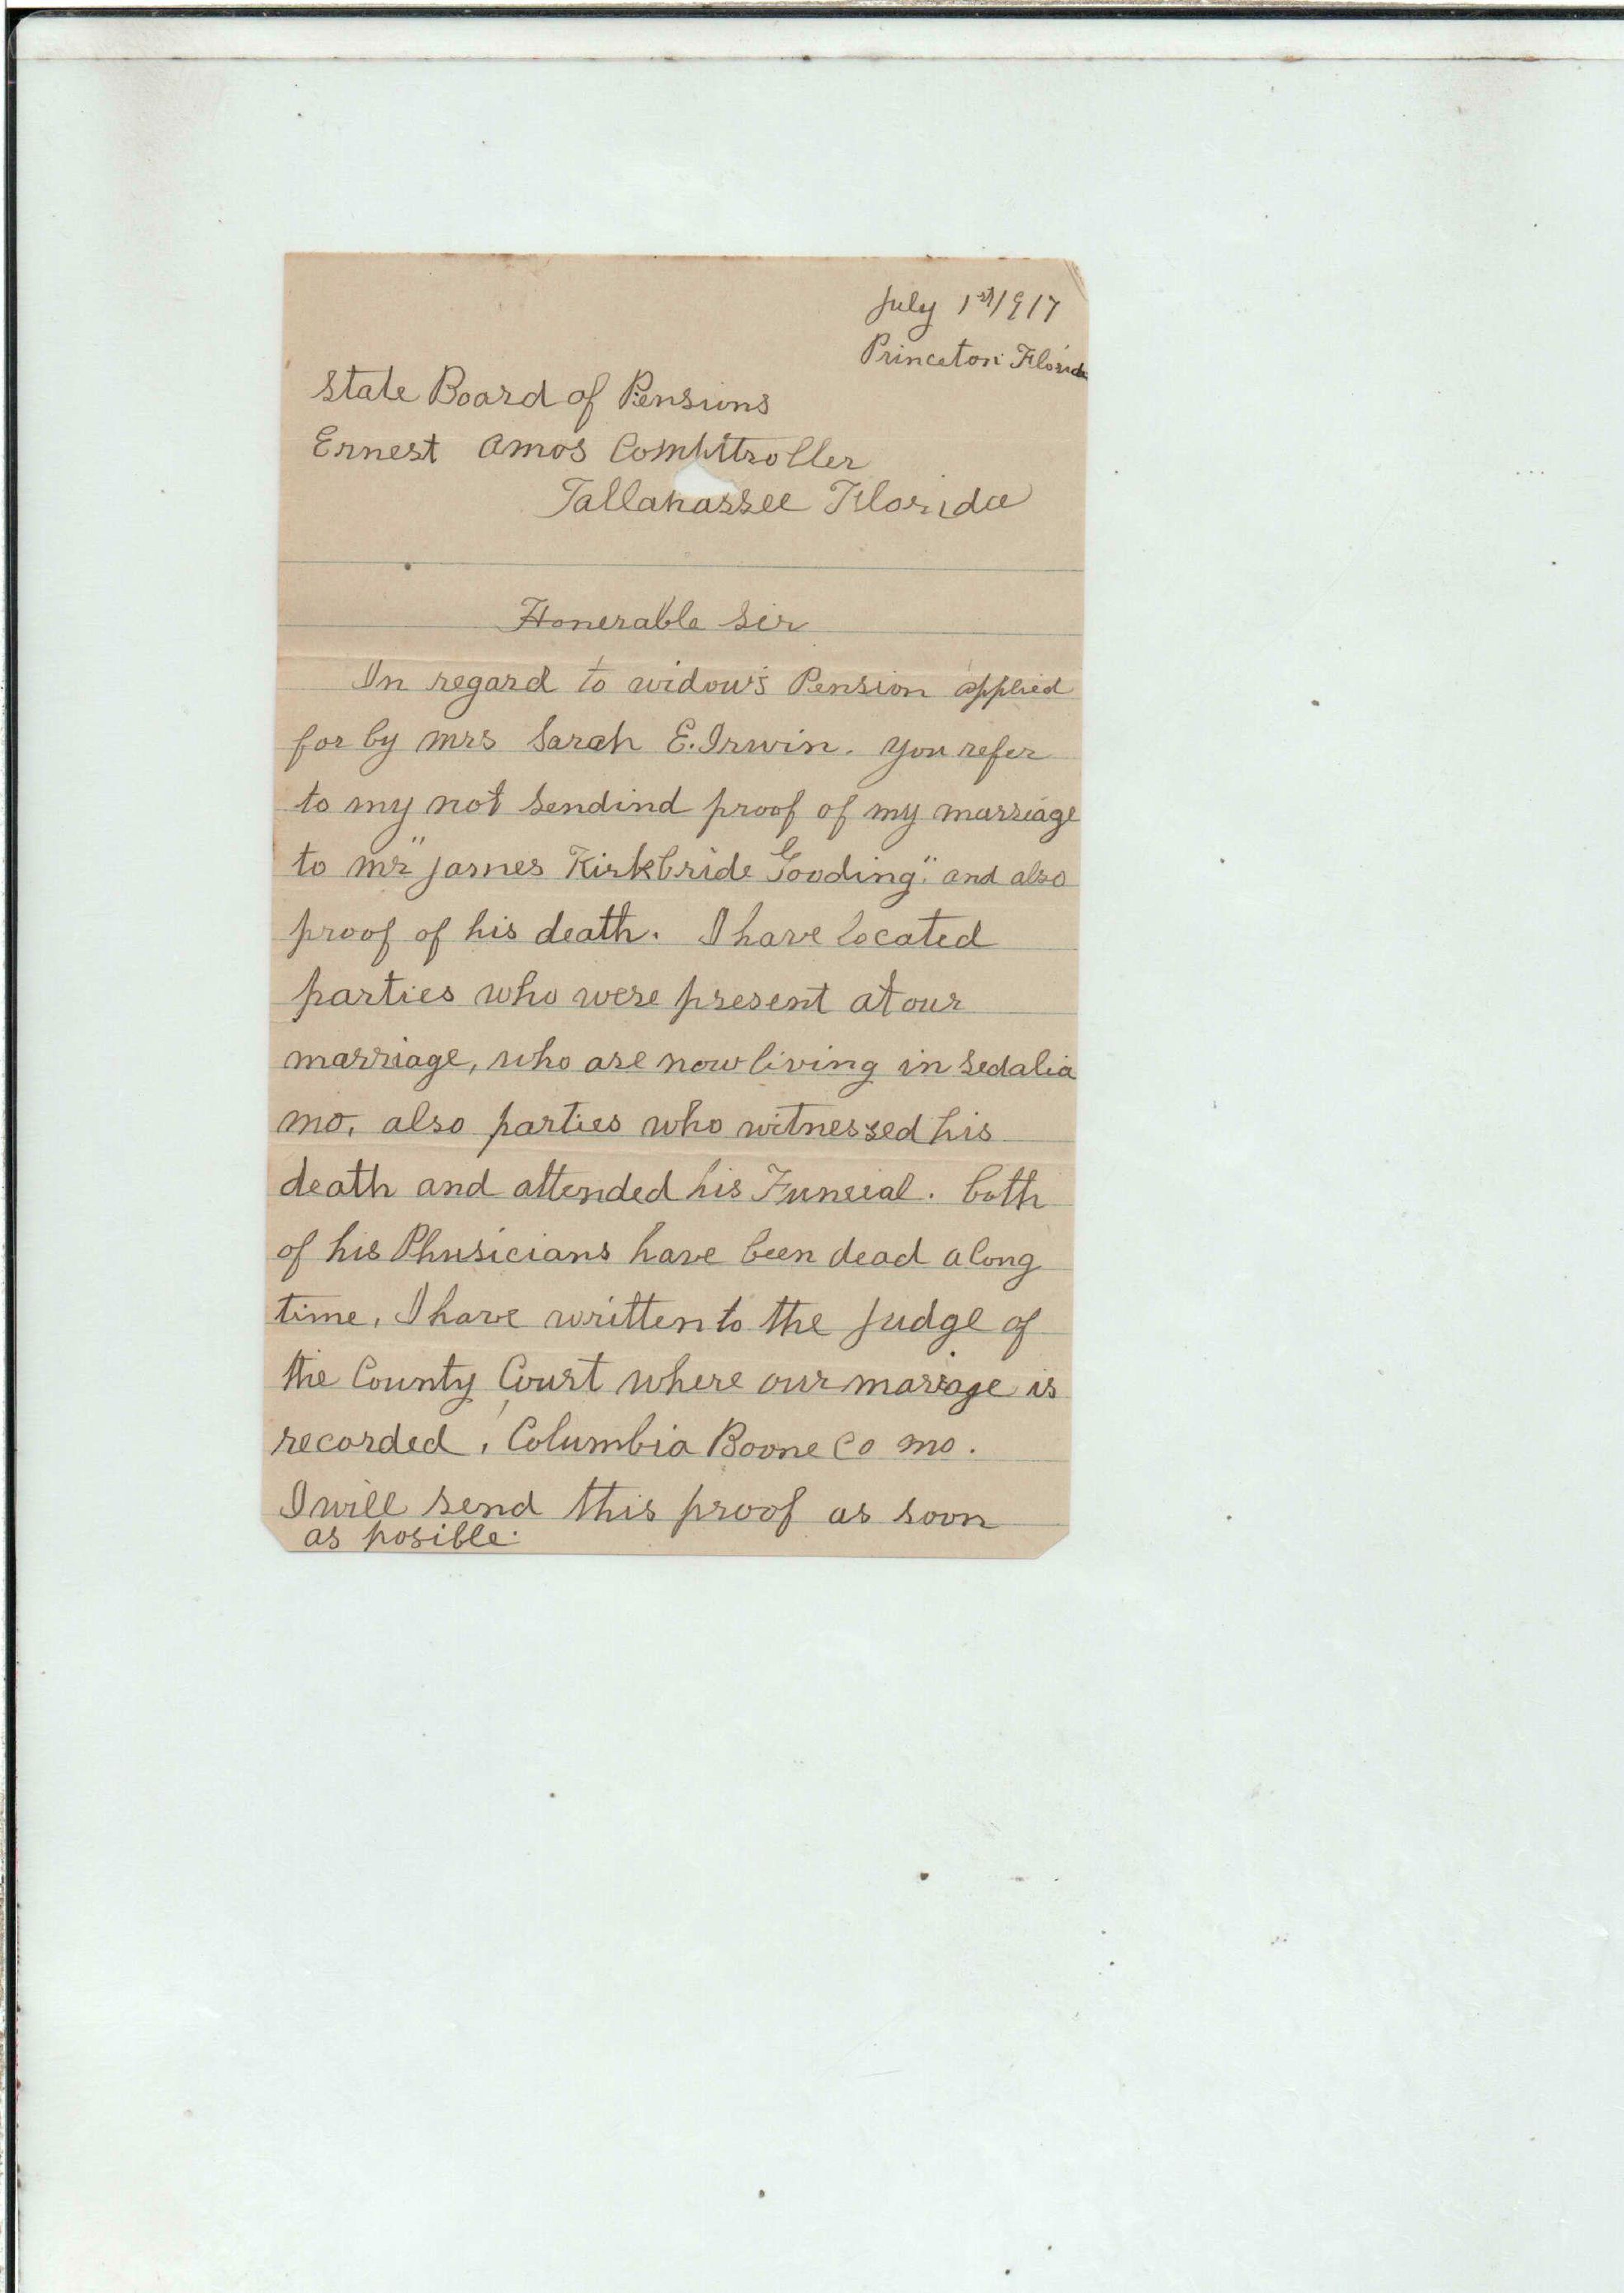 July 1st/1917
Princeton Florida
State Board of Pensions
Ernest Amos Compttroller
Tallahassee Florida
Honerable Sir
In regard to widow's Pension applied
for by Mrs Sarah E. Irwin. You refer
to my not sendind proof of my marriage
to Mr "James Kirkbride Gooding." and also
proof of his death. I have located
parties who were present at our
marriage, who are now living in Sedalia
Mo. also parties who witnessed his
death and attended his Funeral. both
of his Phusicians have been dead along
time, I have written to the Judge of
the County Court where our marrage is
recorded, Columbia Boone Co Mo.
I will send this proof as soon
as posible.